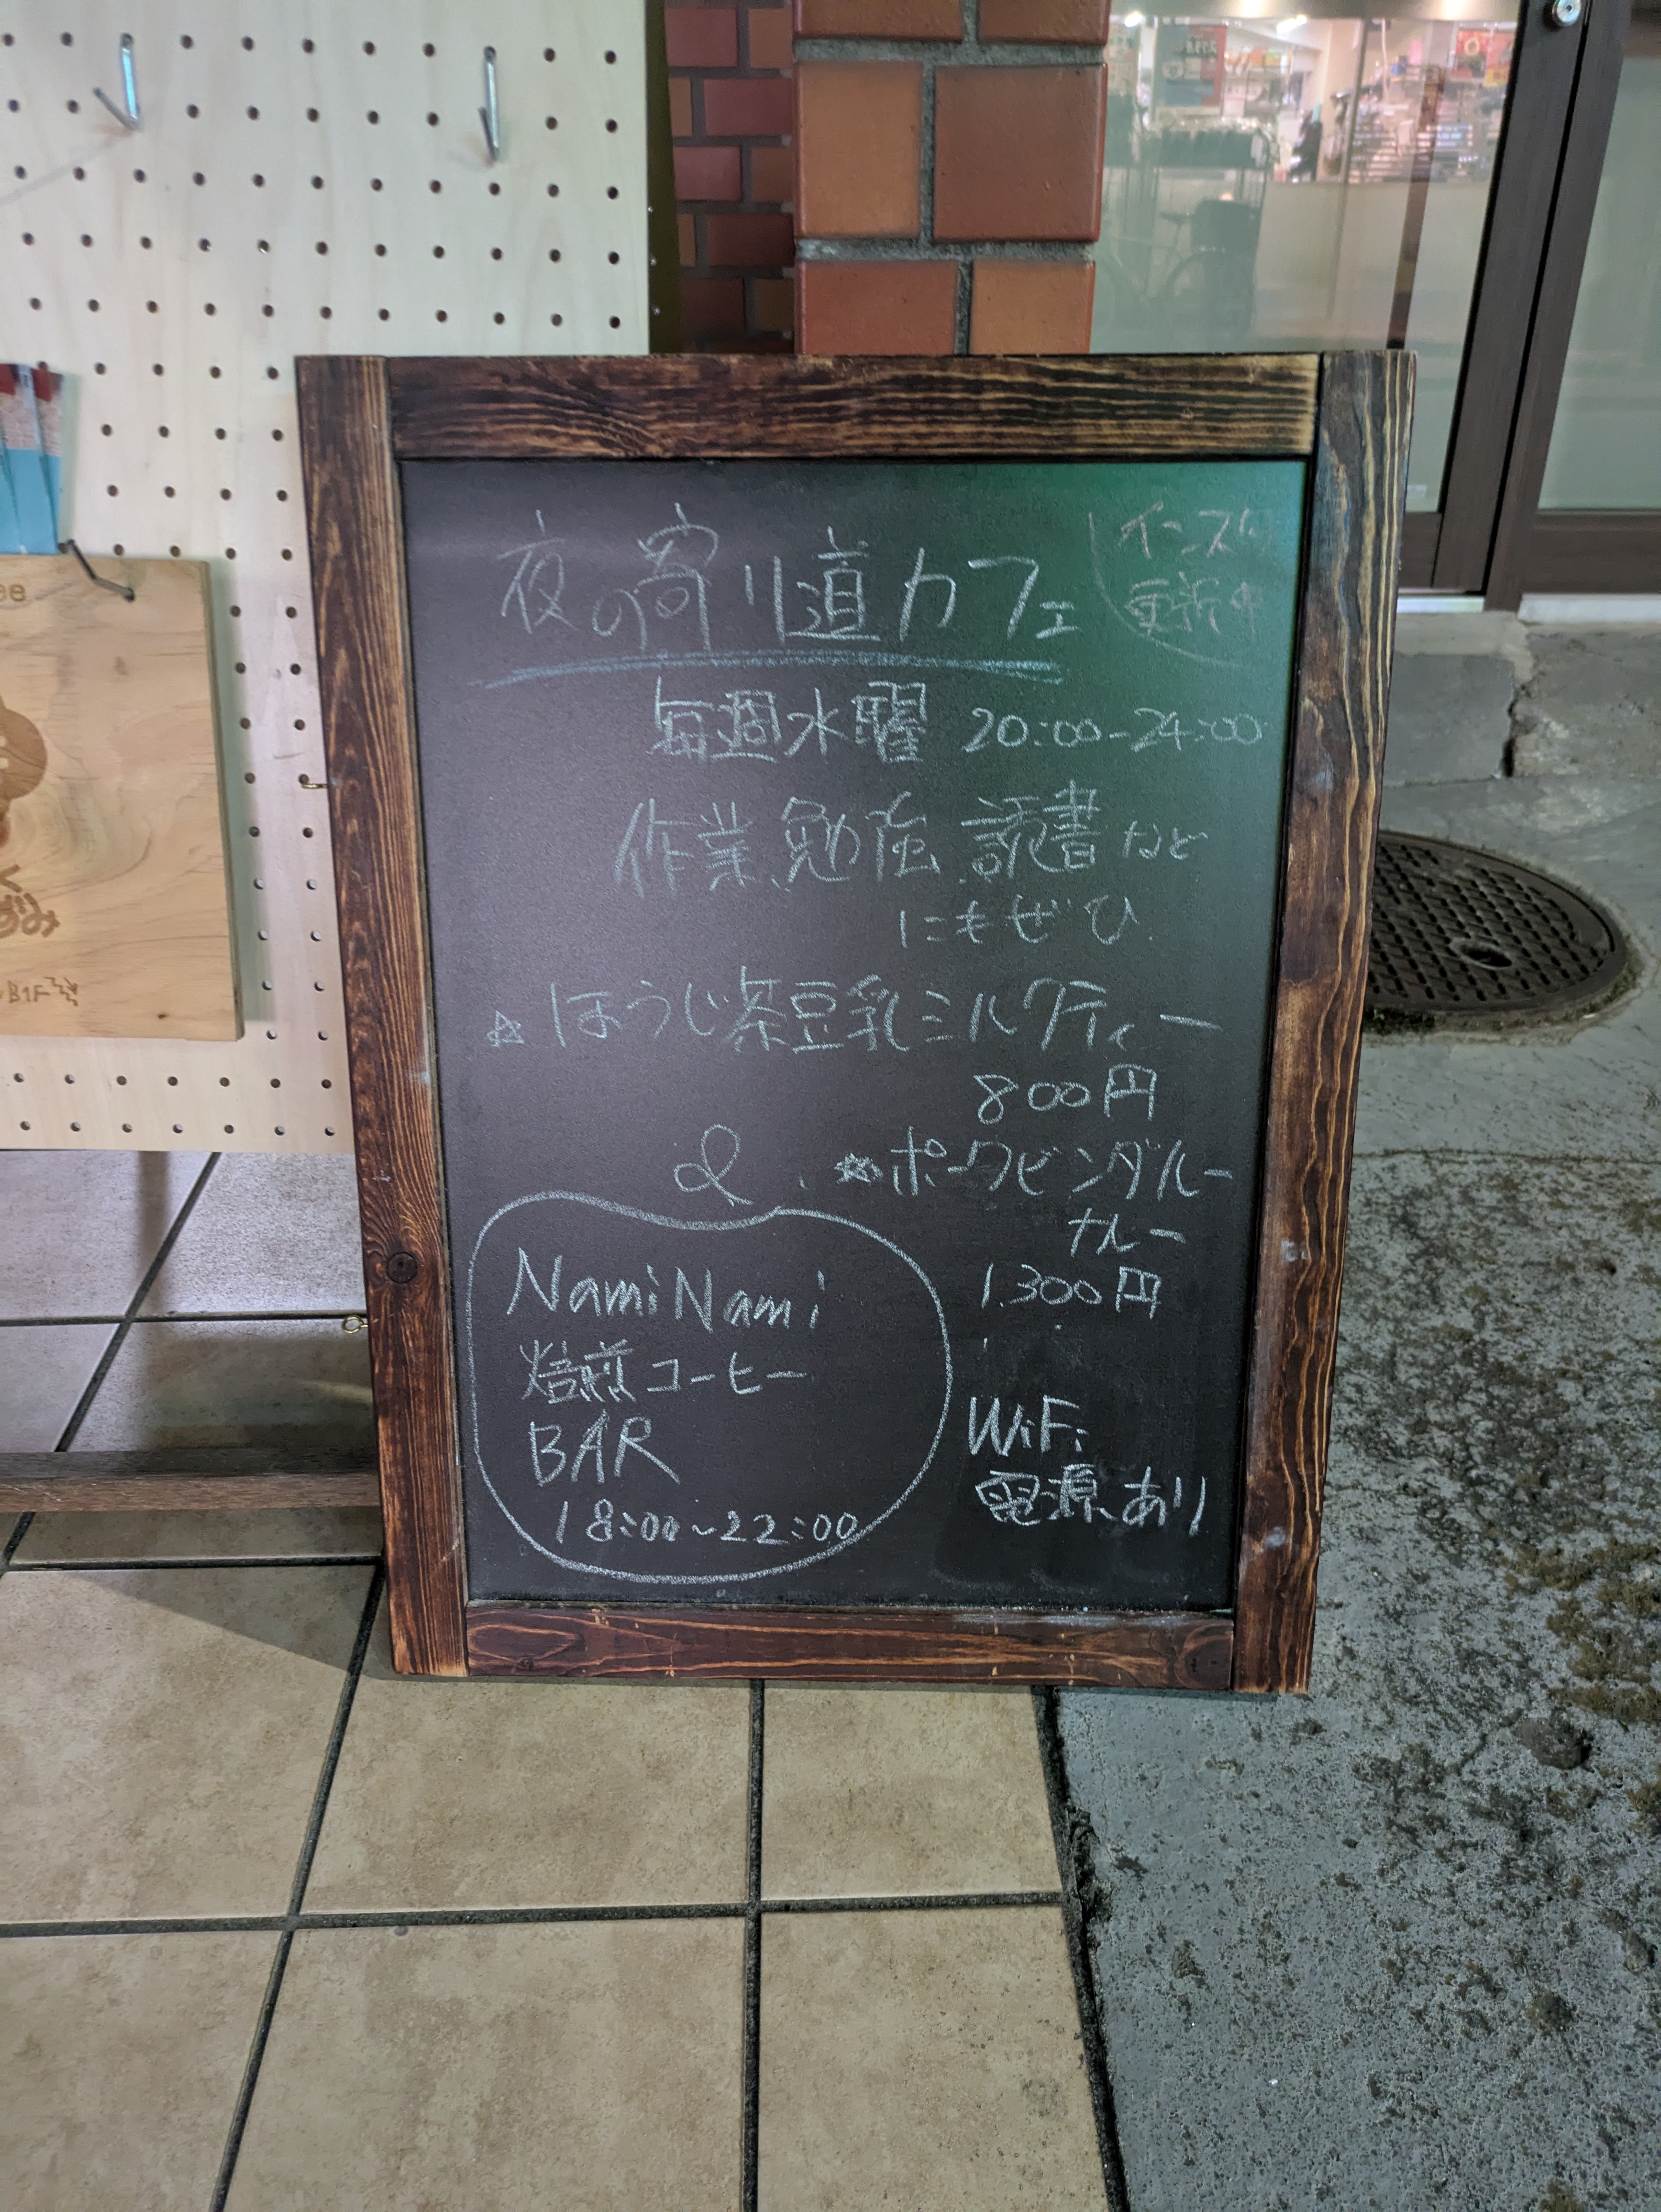 夜の寄り道カフェ
インスタ
更新中
毎週水曜 20:00-24:00
作業、勉強、読書など
にもぜひ
☆ほうじ茶豆乳ミルクティー
800円
&
☆ポークビンダルー
カレー
1,300円
NamiNami
焙煎コーヒー
BAR
18:00~22:00
WiFi
電源あり
B1F